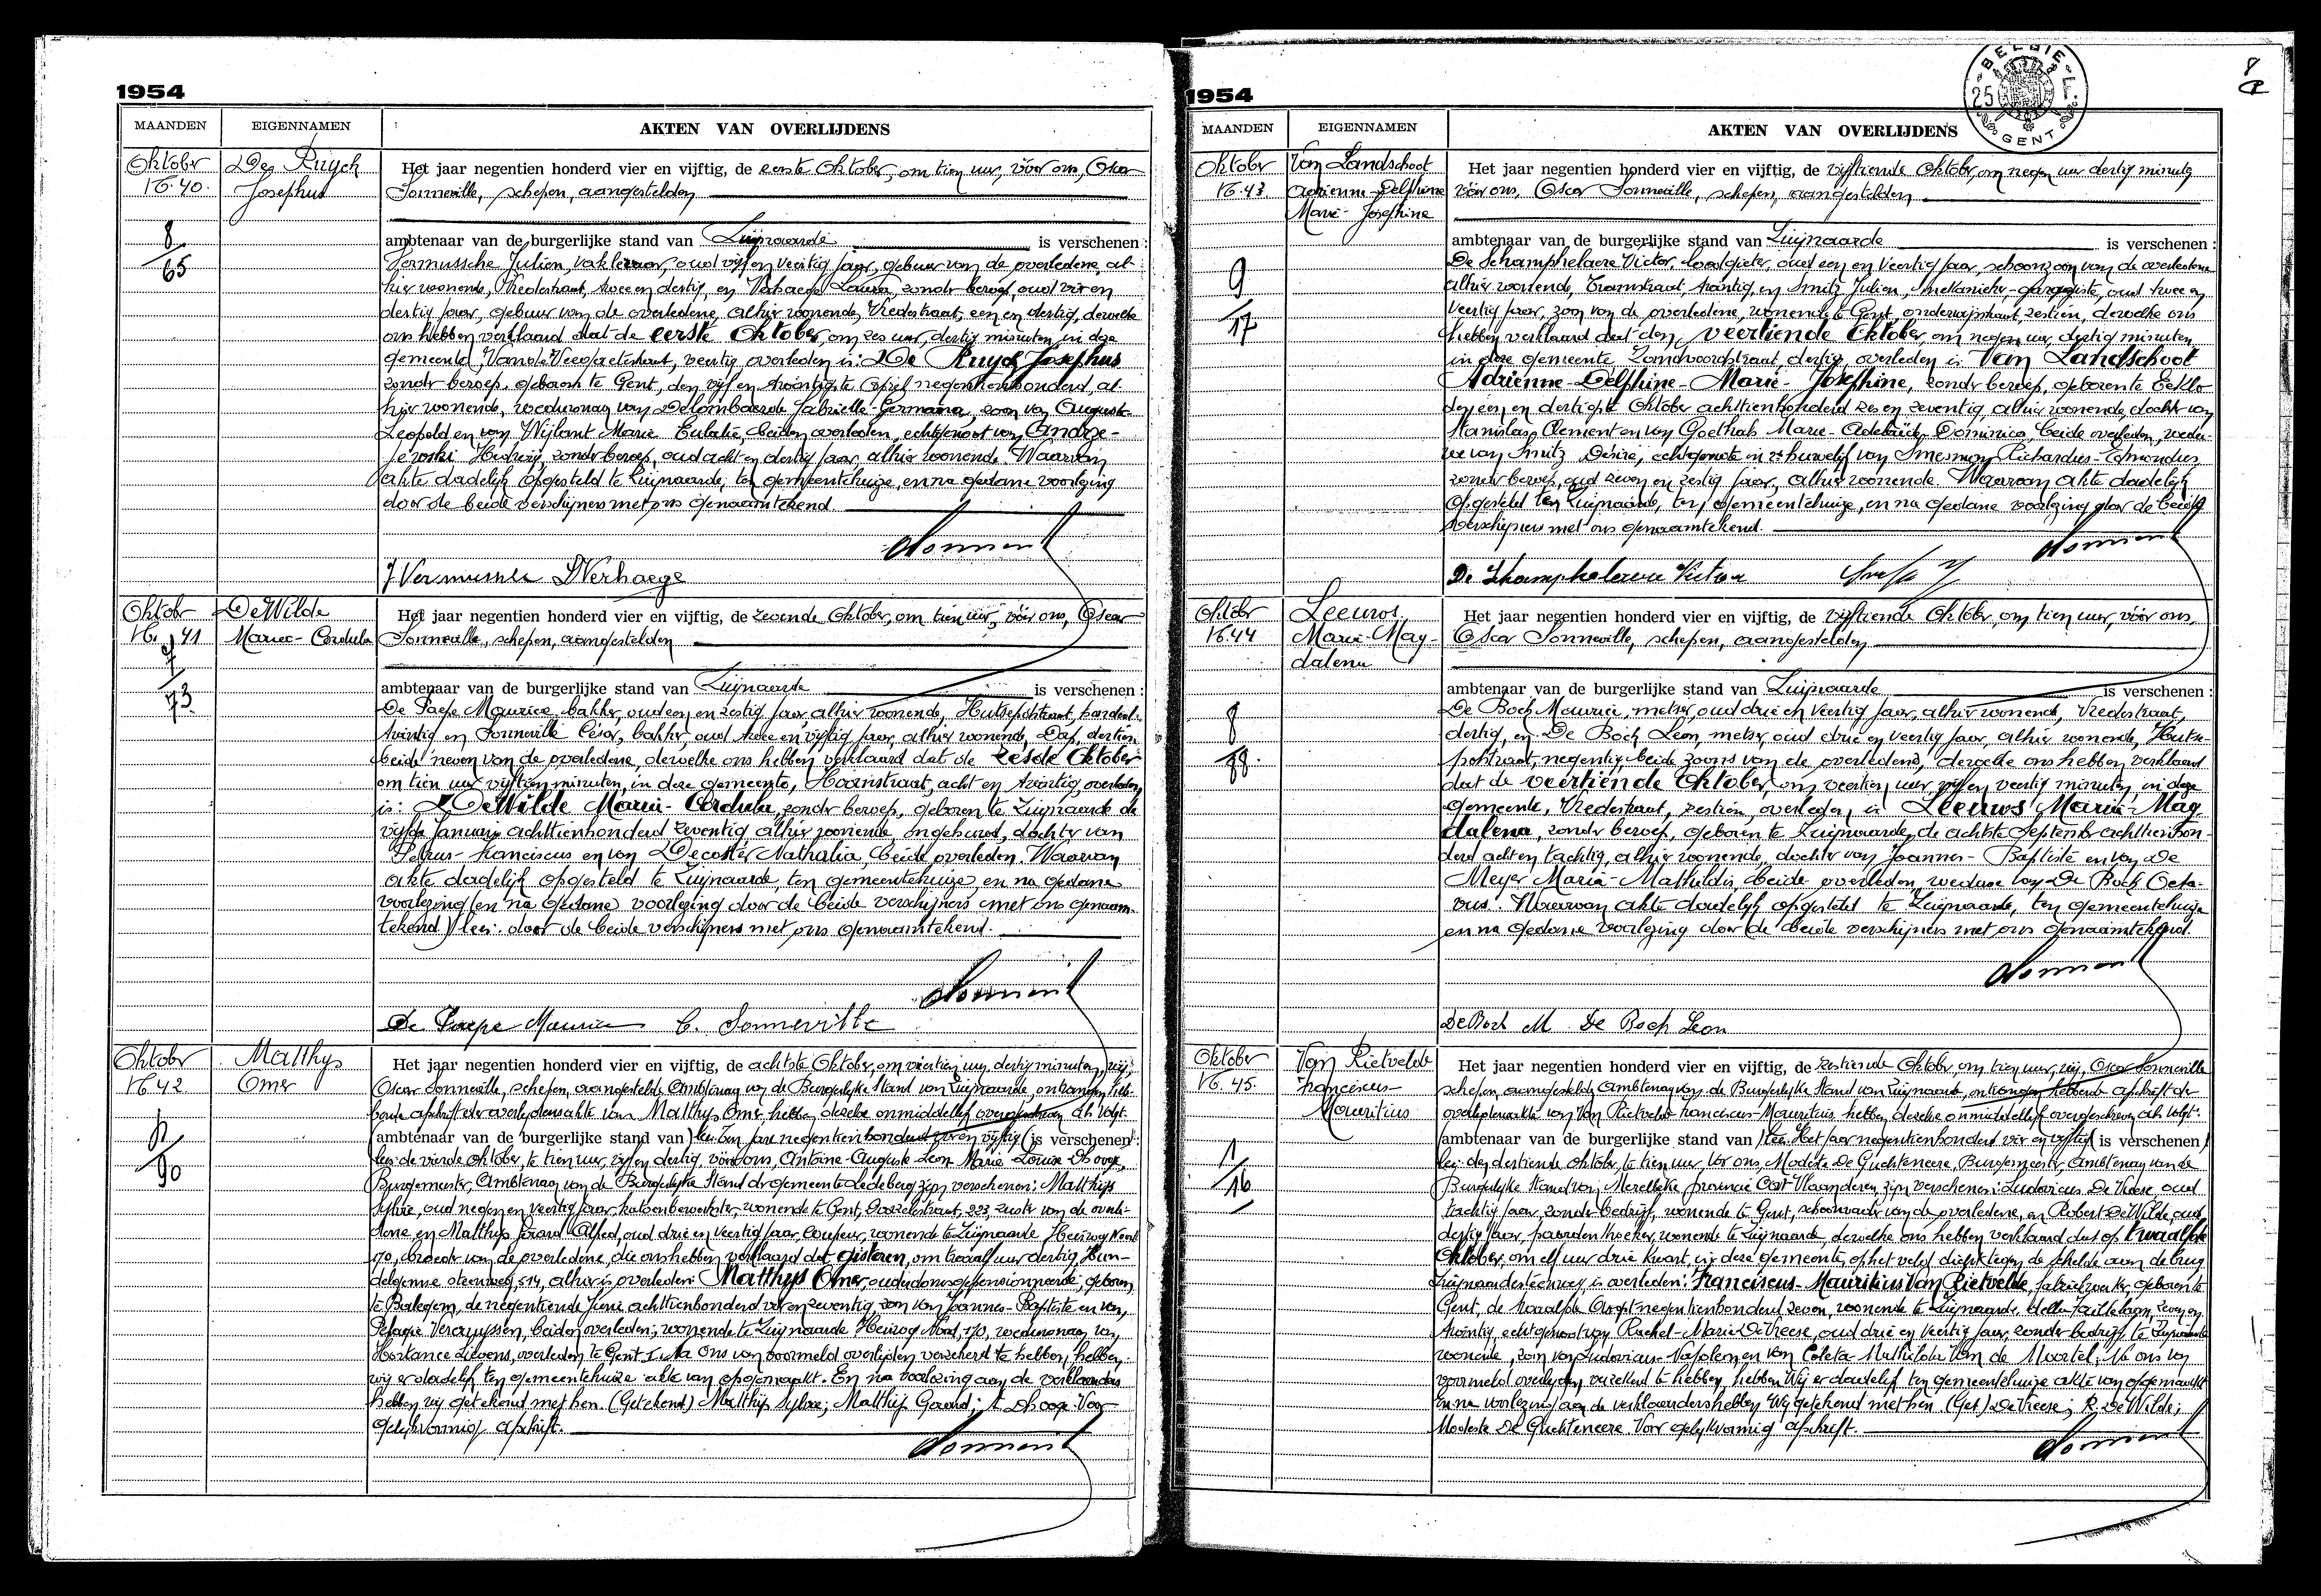 1954
MAANDEN EIGENNAMEN AKTEN VAN OVERLIJDENS
Oktober
N. 40.
8
65
De Ruyck
Josephus
Het jaar negentien honderd vier en vijftig, de eerste Oktober, om tien uur, vóór ons, Oscar
Sonneville, schepen, aangestelden
ambtenaar van de burgerlijke stand van Zwijnaarde is verschenen:
Vermussche Julien, oud vijf en veertig jaar, gebuur van de overledene, al-
hier wonende, Vredestraat, twee en dertig, en Verhaege Laura, zonder beroep, oud vier en
dertig jaar, gebuur van de overledene, alhier wonende, Vredestraat, een en dertig, dewelke
ons hebben verklaard dat de eerste Oktober, om zes uur, dertig minuten, in deze
gemeente, veertig, overleden is: De Ruyck Josephus
zonder beroep, geboren te Gent, den vijf en twintigste April negentienhonderd, al-
hier wonende, weduwnaar van Delombaerde Gabrielle-Germaine, zoon van Auguste-
Leopold en van Wijlant Marie Eulalie, beiden overleden, echtgenoot van Andrze-
jewski Hedwig, zonder beroep, oud acht en dertig jaar, alhier wonende. Waarvan
akte dadelijk opgesteld te Zwijnaarde, ten gemeentehuize, en na gedane voorlezing
door de beide verschijners met ons genaamtekend.
J Vermussche L Verhaege
Oktober
N. 41
7
73
De Wilde
Marie-Cordula
Het jaar negentien honderd vier en vijftig, de zevende Oktober, om tien uur, vóór ons, Oscar
Sonneville, schepen, aangestelden
ambtenaar van de burgerlijke stand van Zwijnaarde is verschenen:
De Paepe Maurice, bakker, oud een en zestig jaar, alhier wonende, Hutsepotstraat, honderd-
twintig en Sonneville César, bakker, oud twee en vijftig jaar, alhier wonende, Dorp, dertien
beide neven van de overledene, dewelke ons hebben verklaard dat de zesde Oktober
om tien uur vijftien minuten, in deze gemeente, Hoornstraat, acht en twintig, overleden
is: De Wilde Marie-Cordula, zonder beroep, geboren te Zwijnaarde de
vijfde Januari achttienhonderd zeventig alhier wonende, ongehuwd, dochter van
Petrus-Franciscus en van Decoster Nathalia, beide overleden. Waarvan
akte dadelijk opgesteld te Zwijnaarde, ten gemeentehuize, en na gedane
voorlezing (en na gedane) voorlezing door de beide verschijners met ons genaam-
tekend) lees: door de beide verschijners met ons genaamtekend.
De Paepe Maurice C. Sonneville
Oktober
N. 42
90
Matthys
Omer
Het jaar negentien honderd vier en vijftig, de achtste Oktober, om veertien uur, dertig minuten, wij,
Oscar Sonneville, schepen, aangestelde Ambtenaar van de Burgerlijke Stand van Zwijnaarde, ontvangen heb-
bende afschrift der overlijdensakte van Matthys Omer, hebben dezelve onmiddellijk overgeschreven als volgt:
(ambtenaar van de burgerlijke stand van) lees: Ten jare negentienhonderd vier en vijftig (is verschenen:
lees: de vierde Oktober, te tien uur, vijf en dertig, vóór ons, Antoine-Auguste-Leon-Marie-Louise Dhooge,
Burgemeester, Ambtenaar van de Burgerlijke Stand der gemeente Ledeberg zijn verschenen: Matthijs
Sylvie, oud negen en veertig jaar, katoenbewerkster, wonende te Gent, 223, zuster van de overle-
dene en Matthijs Gerard Alfred, oud drie en veertig jaar, coupeur, wonende te Zwijnaarde Heiweg Noord
170, broeder van de overledene, die ons hebben verklaard dat gisteren, om twaalf uur dertig, Hun-
delgemse steenweg, 514, alhier is overleden: Matthys Omer, ouderdomsgepensionneerde, geboren
te Balegem, de negentiende Juni achttienhonderd vier en zeventig, zoon van Joannes-Baptiste en van
Pelagie Vercruyssen, beiden overleden; wonende te Zwijnaarde Heiweg Noord, 170, weduwnaar van
Hortance Lievens, overleden te Gent. Na ons van voormeld overlijden verzekerd te hebben, hebben
wij er dadelijk ten gemeentehuize akte van opgemaakt. En na voorlezing aan de verklaarders
hebben wij getekend met hen. (Getekend) Matthijs Sylvie; Matthijs Gerard; A Dhooge. Voor
gelijkvormig afschrift.
1954
8
BELGIE
25 F
GENT
MAANDEN EIGENNAMEN AKTEN VAN OVERLIJDENS
Oktober
N. 43
9
17
Van Landschoot
Adrienne-Delphine
Marie-Josephine
Het jaar negentien honderd vier en vijftig, de vijftiende Oktober, om negen uur dertig minuten
vóór ons, Oscar Sonneville, schepen, aangestelden
ambtenaar van de burgerlijke stand van Zwijnaarde is verschenen:
De Schamphelaere Victor, loodgieter, oud een en veertig jaar, schoonzoon van de overledene
alhier wonende, Tramstraat, twintig, en Smitz Julien, mekanieker-garagiste, oud twee en
veertig jaar, zoon van de overledene, wonende te Gent, zestien, dewelke ons
hebben verklaard dat den veertiende Oktober, om negen uur, dertig minuten
in deze gemeente Zandvoordestraat, dertig, overleden is: Van Landschoot
Adrienne-Delphine-Marie-Josephine, zonder beroep, geboren te Eeklo
den een en dertigste Oktober achttienhonderd zes en zeventig, alhier wonende, dochter van
Stanislas Clement en van Goethals Marie-Adelaïde-Dominica, beide overleden, wedu-
we van Smitz Désiré, echtgenote in 2e huwelijk van Smesman Richardus-Edmondus
zonder beroep, oud zeven en zestig jaar, alhier wonende. Waarvan akte dadelijk
opgesteld ten Zwijnaarde, ten gemeentehuize, en na gedane voorlezing door de beide
verschijners met ons genaamtekend.
De Schamphelaere Victor
Oktober
N. 44
8
88.
Leeuws
Maria-Mag-
dalena
Het jaar negentien honderd vier en vijftig, de vijftiende Oktober, om tien uur, vóór ons,
Oscar Sonneville, schepen, aangestelden
ambtenaar van de burgerlijke stand van Zwijnaarde is verschenen:
De Bock Maurice, metser, oud drie en veertig jaar, alhier wonende, Vredestraat,
dertig, en De Bock Leon, metser, oud drie en veertig jaar, alhier wonende, Hutse-
potstraat, negentig, beide zoons van de overledene, dewelke ons hebben verklaard
dat de veertiende Oktober, om veertien uur vijf en veertig minuten, in deze
gemeente, Vredestraat, zestien, overleden is Leeuws Maria-Mag
dalena, zonder beroep, geboren te Zwijnaarde, de achtste September achttienhon-
derd acht en tachtig, alhier wonende, dochter van Joannes-Baptiste en van De
Meyer Maria-Mathildis, beide overleden, weduwe van De Bock Octa-
vus. Waarvan akte dadelijk opgesteld te Zwijnaarde, ten gemeentehuize
en na gedane voorlezing door de beide verschijners met ons genaamtekend.
De Bock M De Bock Leon
Oktober
N. 45.
1
16
Van Rietvelde
Franciscus-
Mauritius
Het jaar negentien honderd vier en vijftig, de zestiende Oktober, om tien uur, wij, Oscar Sonneville
schepen aangestelde Ambtenaar van de Burgerlijke Stand van Zwijnaarde, ontvangen hebbende afschrift der
overlijdensakte van Van Rietvelde Franciscus-Mauritius, hebben dezelve onmiddellijk overgeschreven als volgt:
(ambtenaar van de burgerlijke stand van) lees: Het jaar negentienhonderd vier en vijftig (is verschenen)
lees: den dertiende Oktober, te tien uur, vóór ons, Modeste De Guchteneere, Burgemeester, Ambtenaar van de
Burgerlijke Stand van Merelbeke provincie Oost Vlaanderen, zijn verschenen: Ludovicus De Vreese, oud
tachtig jaar, zonder bedrijf, wonende te Gent, schoonvader van de overledene, en Robert De Wilde, oud
dertig jaar, paardenfokker, wonende te Zwijnaarde dewelke ons hebben verklaard dat op twaalfde
Oktober, om elf uur drie kwart, in deze gemeente, op het veld dicht tegen de Schelde aan de brug
Zwijnaardesteenweg, is overleden: Franciscus-Mauritius Van Rietvelde, fabriekwerker, geboren te
Gent, de twaalfde Oogst negentienhonderd zeven, wonende te Zwijnaarde, della Faillelaan, zeven en
twintig, echtgenoot van Rachel-Marie De Vreese, oud drie en veertig jaar, zonder bedrijf, te Zwijnaarde
wonende, zoon van Ludovicus-Napoleon en van Coleta-Mathilde Van de Moortel. Na ons van
voormeld overlijden verzekerd te hebben, hebben Wij er dadelijk ten gemeentehuize akte van opgemaakt
En na voorlezing aan de verklaarders hebben Wij getekend met hen (Get) De Vreese; R. De Wilde;
Modeste De Guchteneere Voor gelijkvormig afschrift.